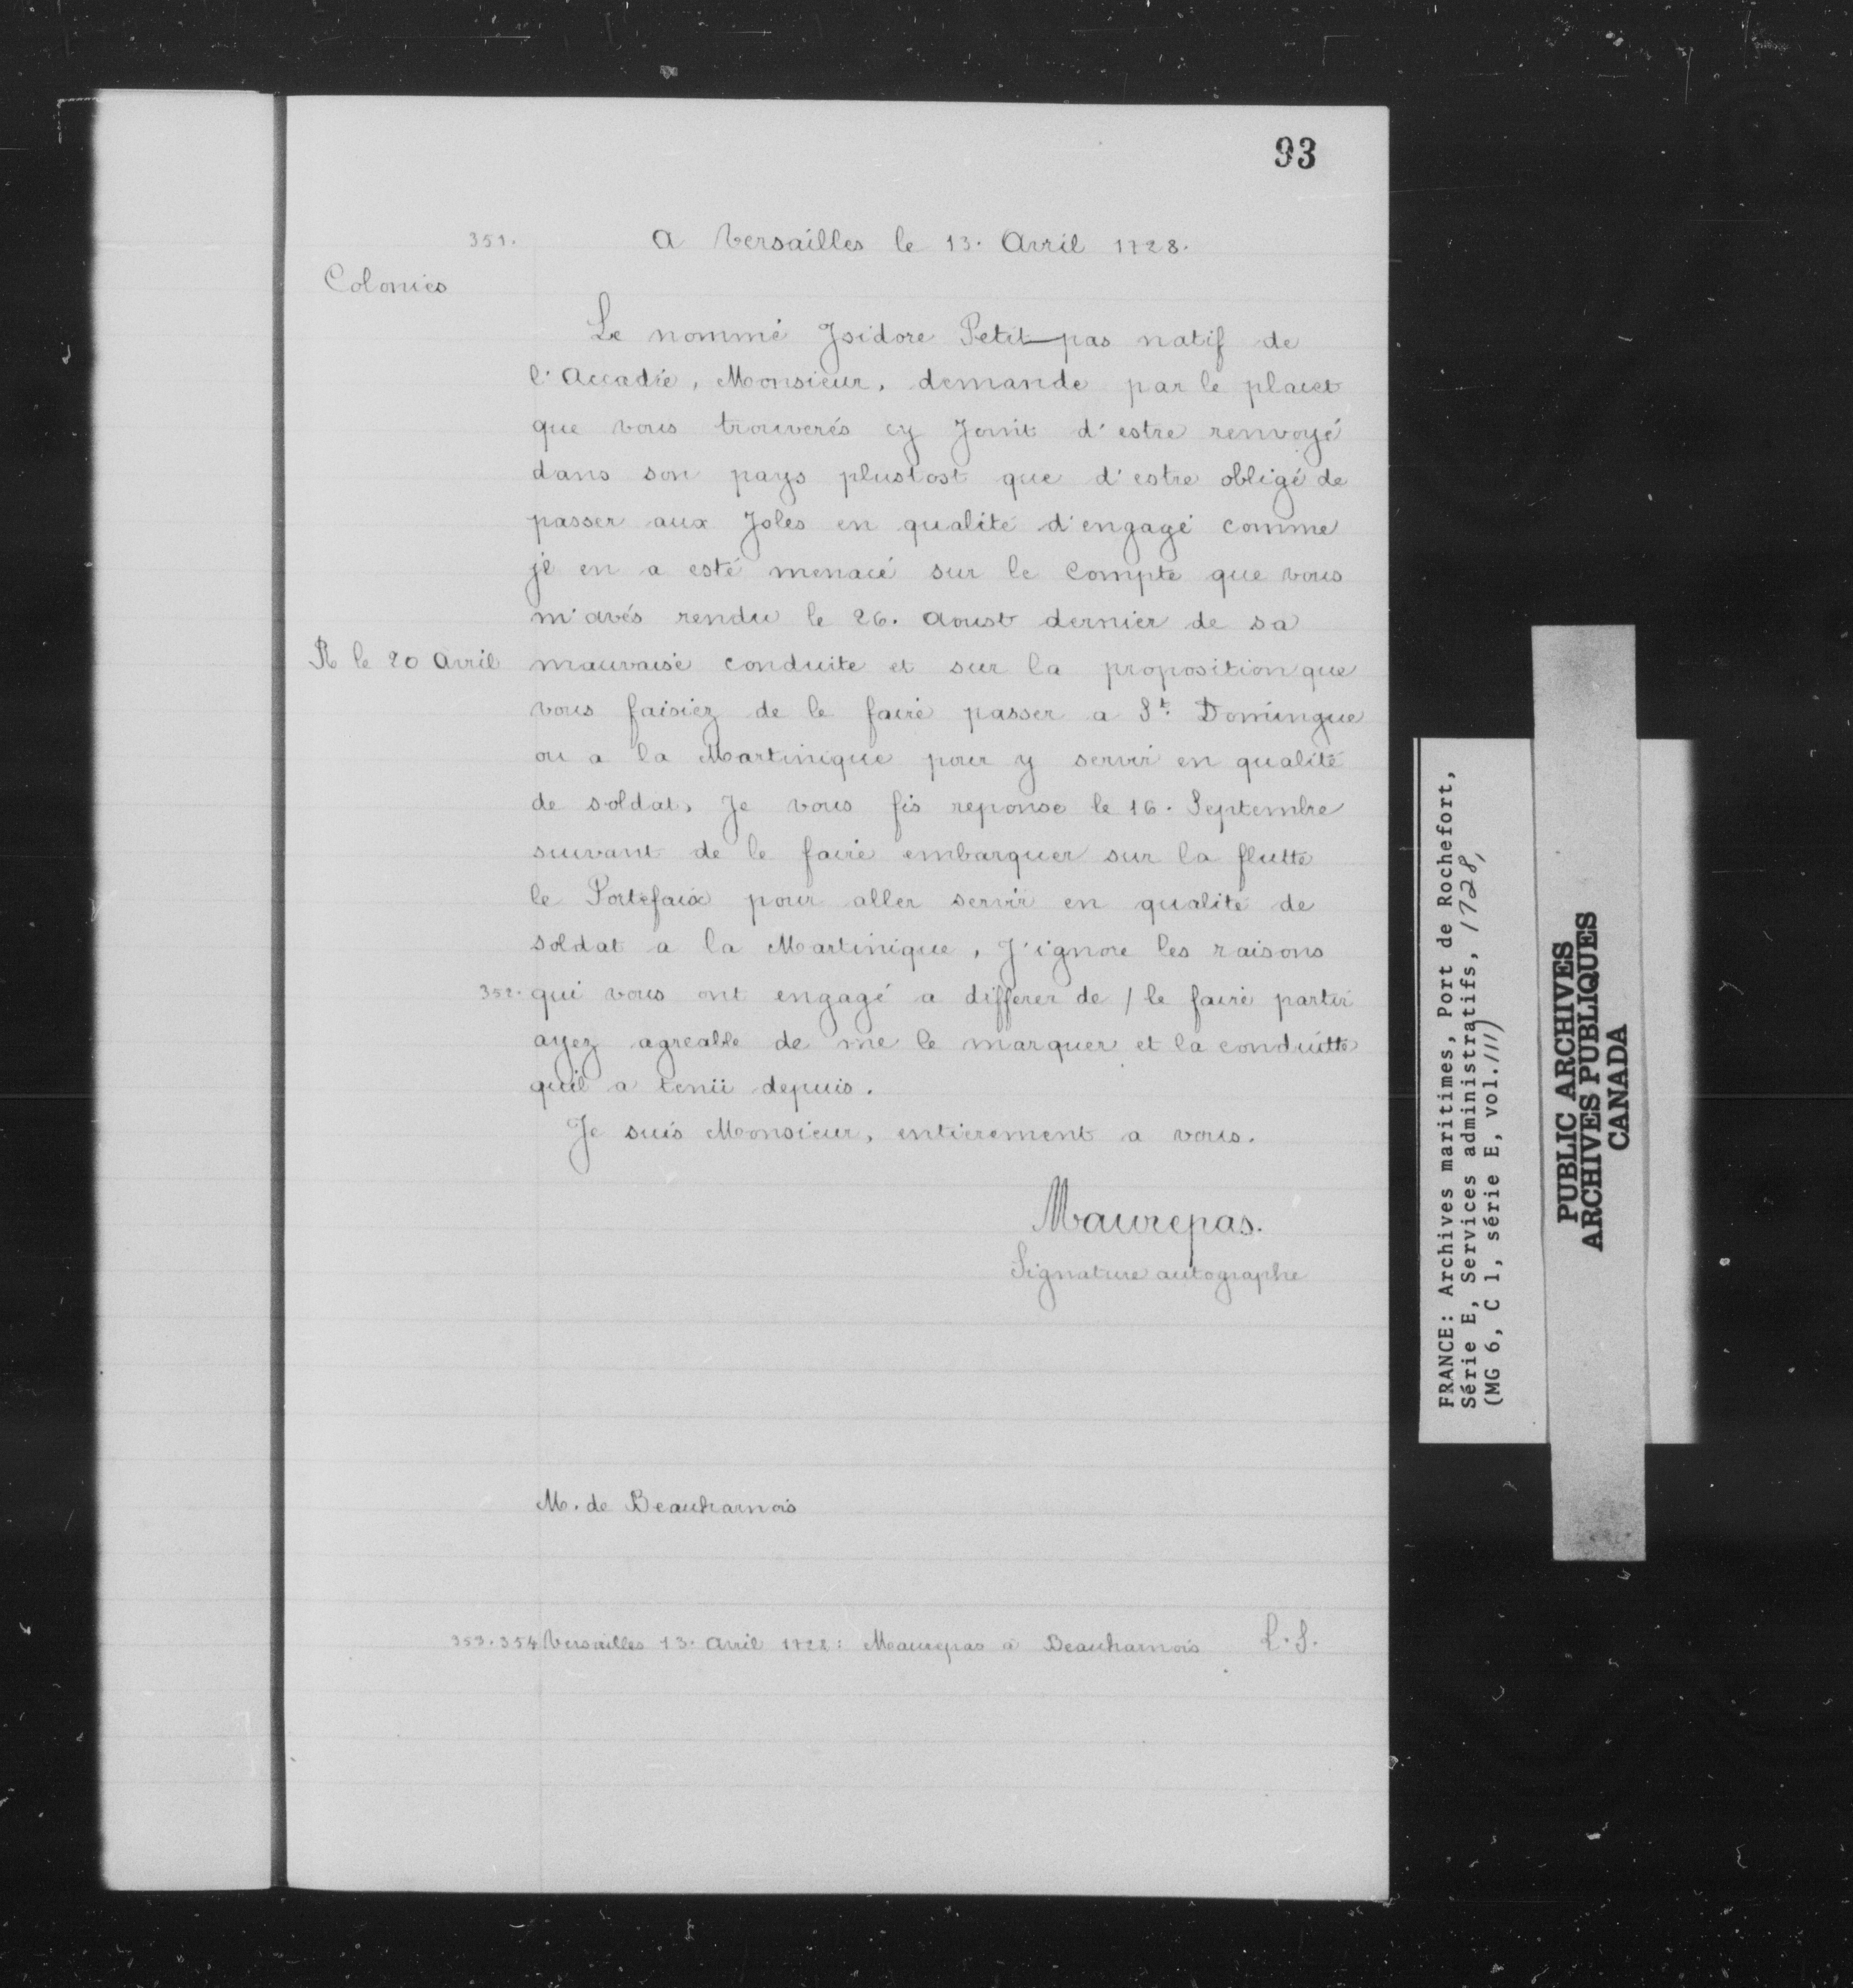 93
351. A Versailles le 13. Avril 1728.
Colonies
Le nommé Jsidore Petit-pas natif de
l'Accadie, Monsieur, demande par le placet
que vous trouverés cy Joint d'estre renvoyé
dans son pays plustost que d'estre obligé de
passer aux Jsles en qualité d'engagé comme
jl en a esté menacé sur le Compte que vous
m'avés rendu le 26. Aoust dernier de sa
R le 20 Avril mauvaise conduite et sur la proposition que
vous faisiez de le faire passer a St. Domingue
ou a la Martinique pour y servir en qualité
de soldat, Je vous fis reponse le 16. Septembre
suivant de le faire embarquer sur la flutte
le Portefaix pour aller servir en qualité de
soldat a la Martinique, J'ignore les raisons
352. qui vous ont engagé a differer de / le faire partir
ayez agreable de me le marquer et la conduitte
quil a tenü depuis.
Je suis Monsieur, entierement a vous.
Maurepas.
Signature autographe
M. de Beauharnois
353.354 Versailles 13. Avril 1728: Maurepas à Beauharnois L.S.
FRANCE: Archives maritimes, Port de Rochefort,
Série E, Services administratifs, 1728,
(MG 6, C 1, série E, vol.111)
PUBLIC ARCHIVES
ARCHIVES PUBLIQUES
CANADA